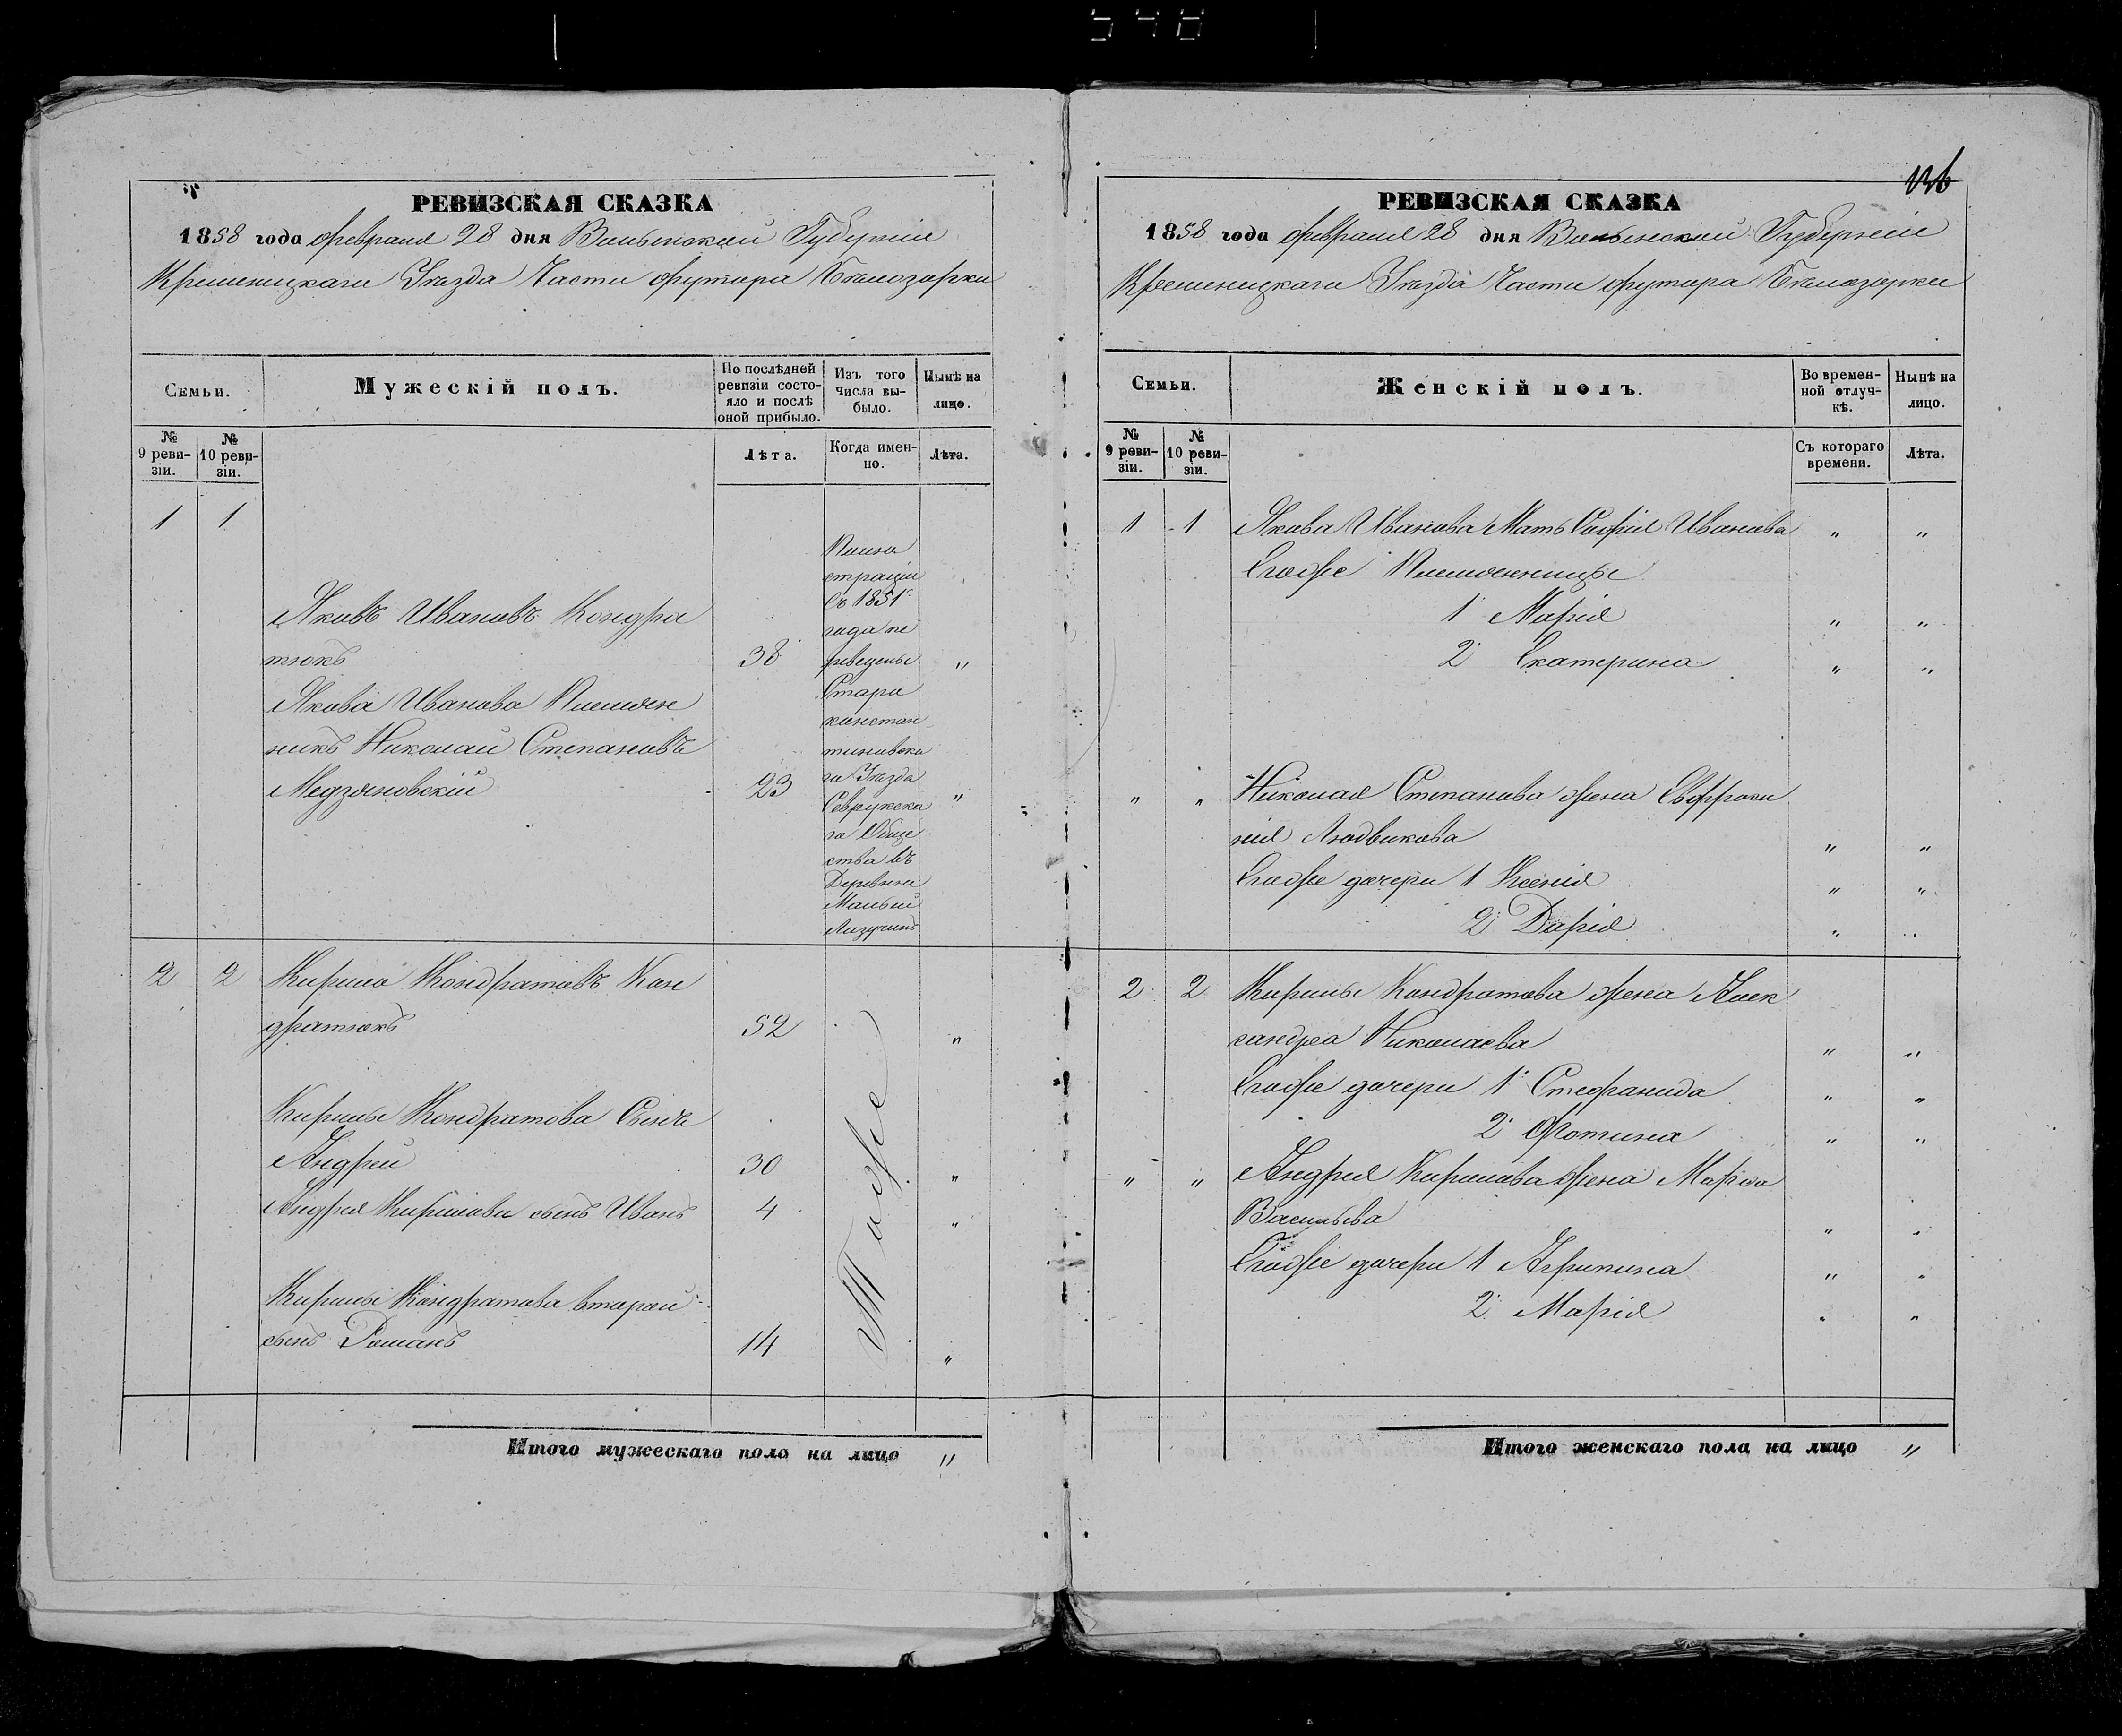 548
РЕВИЗСКАЯ СКАЗКА
1858 года февраля 28 дня Волынской Губерніи
Кременецкаго Уезда Части футора Белозорки
Семьи.
Мужескій полъ.
По послѣдней ревизіи состояло и послѣ оной прибыло.
Изъ того числа выбыло.
Нынѣ на лицо.
№ 9 ревизіи.
№ 10 ревизіи.
Лѣта.
Когда именно.
Лѣта.
1 1
Яковъ Ивановъ Кондра
тюкъ 38 "
Якова Иванова Племян
никъ Николай Степановъ
Медзяновскій 23 "
По люстраціи
съ 1851
года пе
реведены
Старо
констан
тиновска
го Уезда
Севрукска
го Обще
ства въ
Деревни
Малый
Лазучинъ
2 2 Кирило Кондратовъ Кон
дратюкъ 52 "
Кирилы Кондратова Сынъ
Андрей 30 "
Андрея Кирилова сынъ Иванъ 4 "
Кирилы Кондратова второй
сынъ Романъ 14 "
Тоже
Итого мужескаго пола на лицо "
136
РЕВИЗСКАЯ СКАЗКА
1858 года февраля 28 дня Волынской Губерніи
Кременецкаго Уезда Части футора Белозорки
Семьи.
Женскій полъ.
Во временной отлучкѣ.
Нынѣ на лицо.
№ 9 ревизіи.
№ 10 ревизіи.
Съ котораго времени.
Лѣта.
1 1 Якова Иванова Мать Софія Иванова " "
Егоже Племянницы
1 Марія " "
2 Екатерина " "
" " Николая Степанова жена Евфроси
нія Людвикова " "
Егоже дочери 1 Ксенія " "
2 Дарія " "
2 2 Кирилы Кондратова жена Алек
сандра Николаева " "
Егоже дочери 1 Стефанида " "
2 Фотина " "
" " Андрея Кирилова жена Марѳа
Васильева " "
Егоже дочери 1 Агрипина " "
2 Марія " "
Итого женскаго пола на лицо "